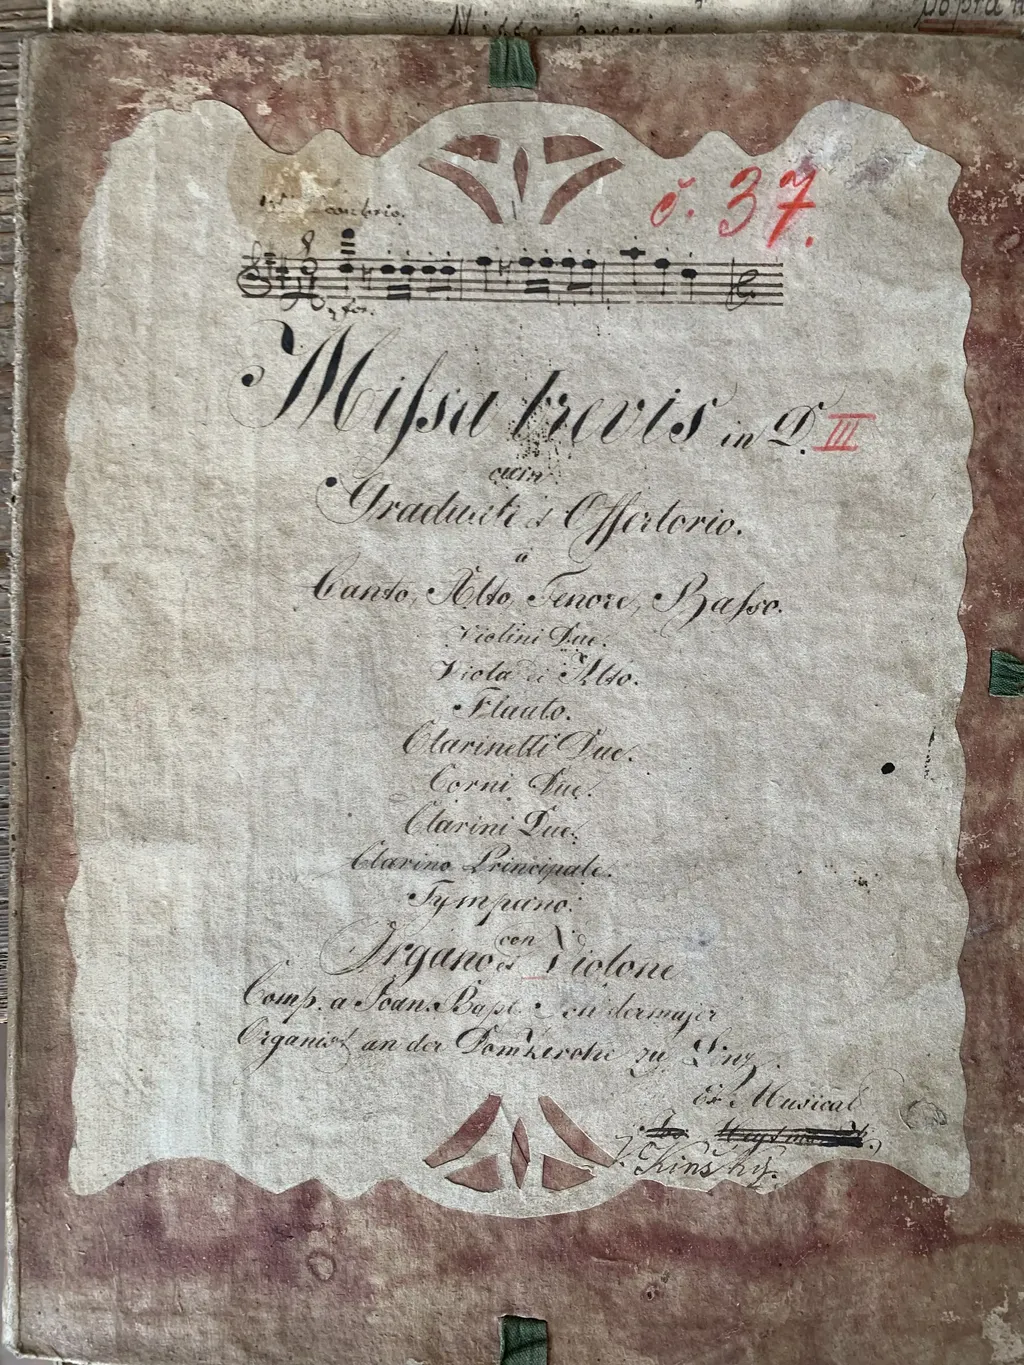 Missa brevis
č. 37.
con brio.
Missa brevis in D. III
cum
Graduali et Offertorio.
a
Canto, Alto, Tenore, Basso.
Violini Due.
Viola di Alto.
Flauto.
Clarinetti Due.
Corni Due.
Clarini Due.
Clarino Principale.
Tympano.
con
Organo et Violone
Comp. a Joan. Bapt.
Organist an der Domkirche zu Linz.
Ex Musical
Kinský.